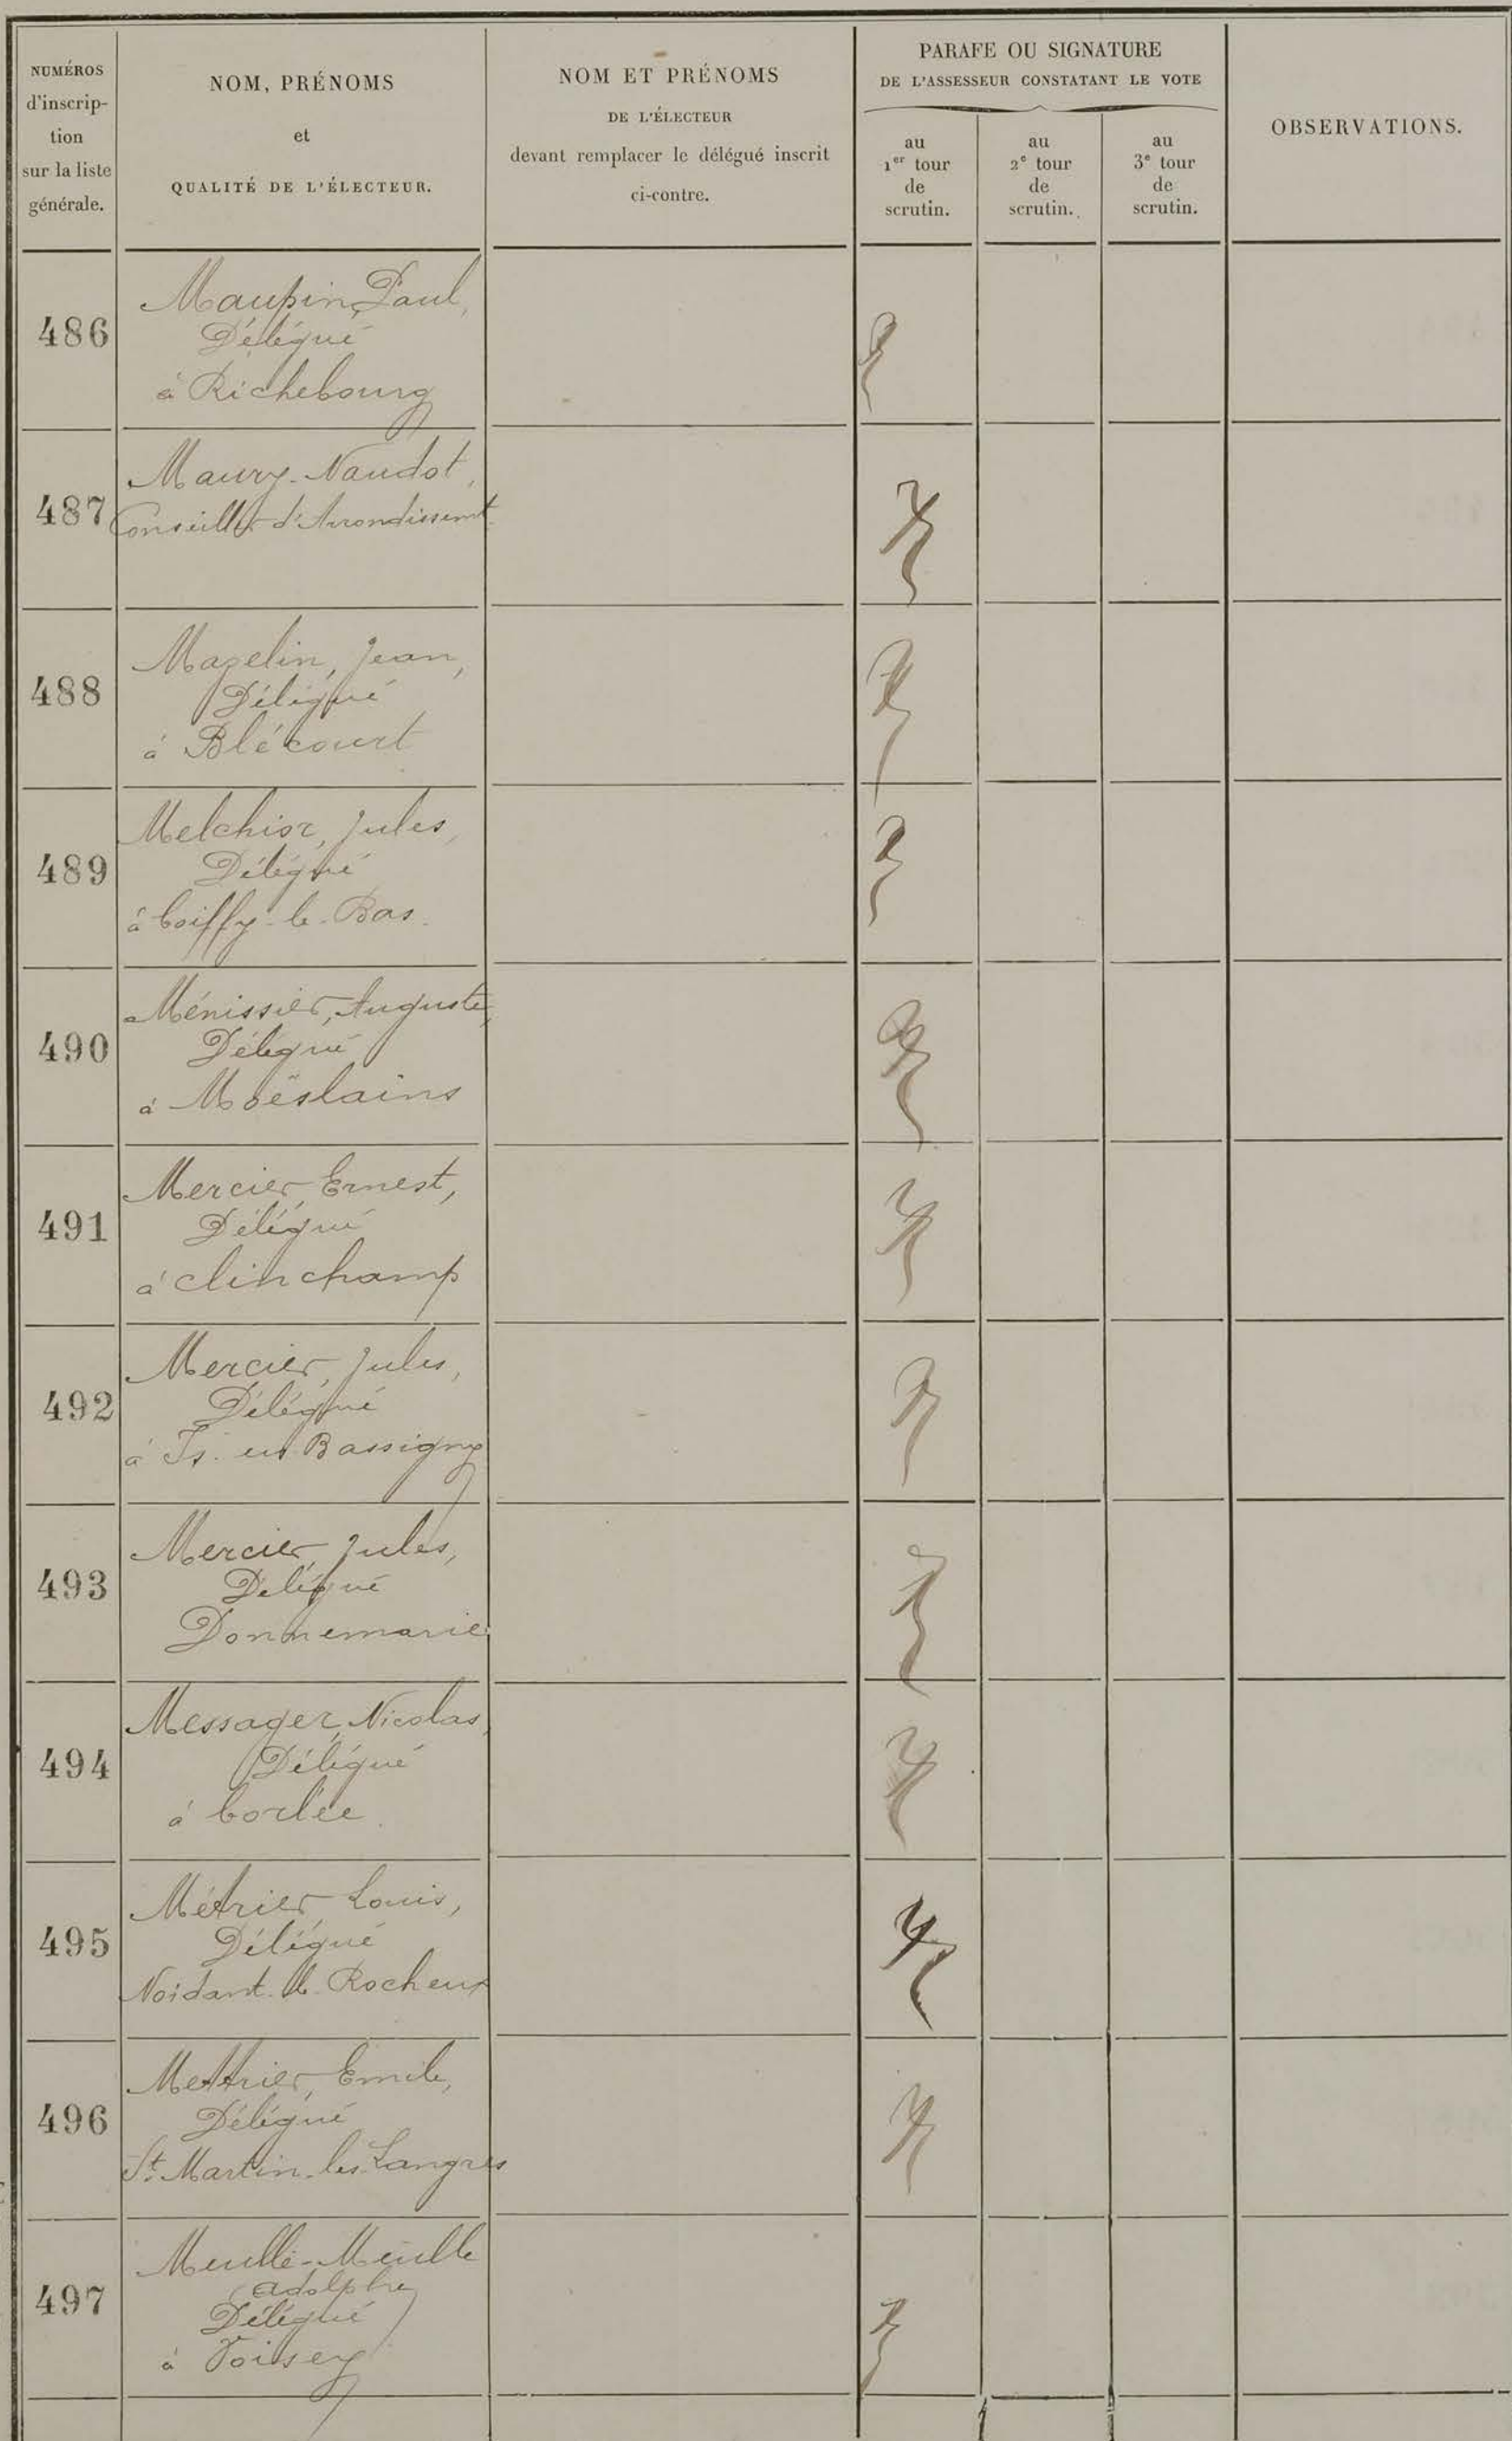 NUMÉROS
d'inscrip-
tion
sur la liste
générale.
NOM, PRÉNOMS
et
QUALITÉ DE L'ÉLECTEUR.
NOM ET PRÉNOMS
DE L'ÉLECTEUR
devant remplacer le délégué inscrit
ci-contre.
PARAFE OU SIGNATURE
DE L'ASSESSEUR CONSTATANT LE VOTE
au
1er tour
de
scrutin.
au
2e tour
de
scrutin.
au
3e tour
de
scrutin.
OBSERVATIONS.
486
Maupin, Paul,
Délégué
à Richebourg
487
Maury-Naudot,
Conseiller d'Arrondissemt
488
Mazelin, Jean,
Délégué
à Blécourt
489
Melchior, Jules,
Délégué
à Coiffy-le-Bas.
490
Ménissier, Auguste,
Délégué
à Moëslains
491
Mercier, Ernest,
Délégué
à Clinchamp
492
Mercier, Jules,
Délégué
à Is-en-Bassigny
493
Mercier, Jules,
Délégué
Donnemarie
494
Messager, Nicolas,
Délégué
à Corlée.
495
Métrier Louis,
Délégué
Noidant-le-Rocheux
496
Mettrier, Emile,
Délégué
St. Martin-les-Langres
497
Meullé-Meullé
Adolphe
Délégué
à Voisey